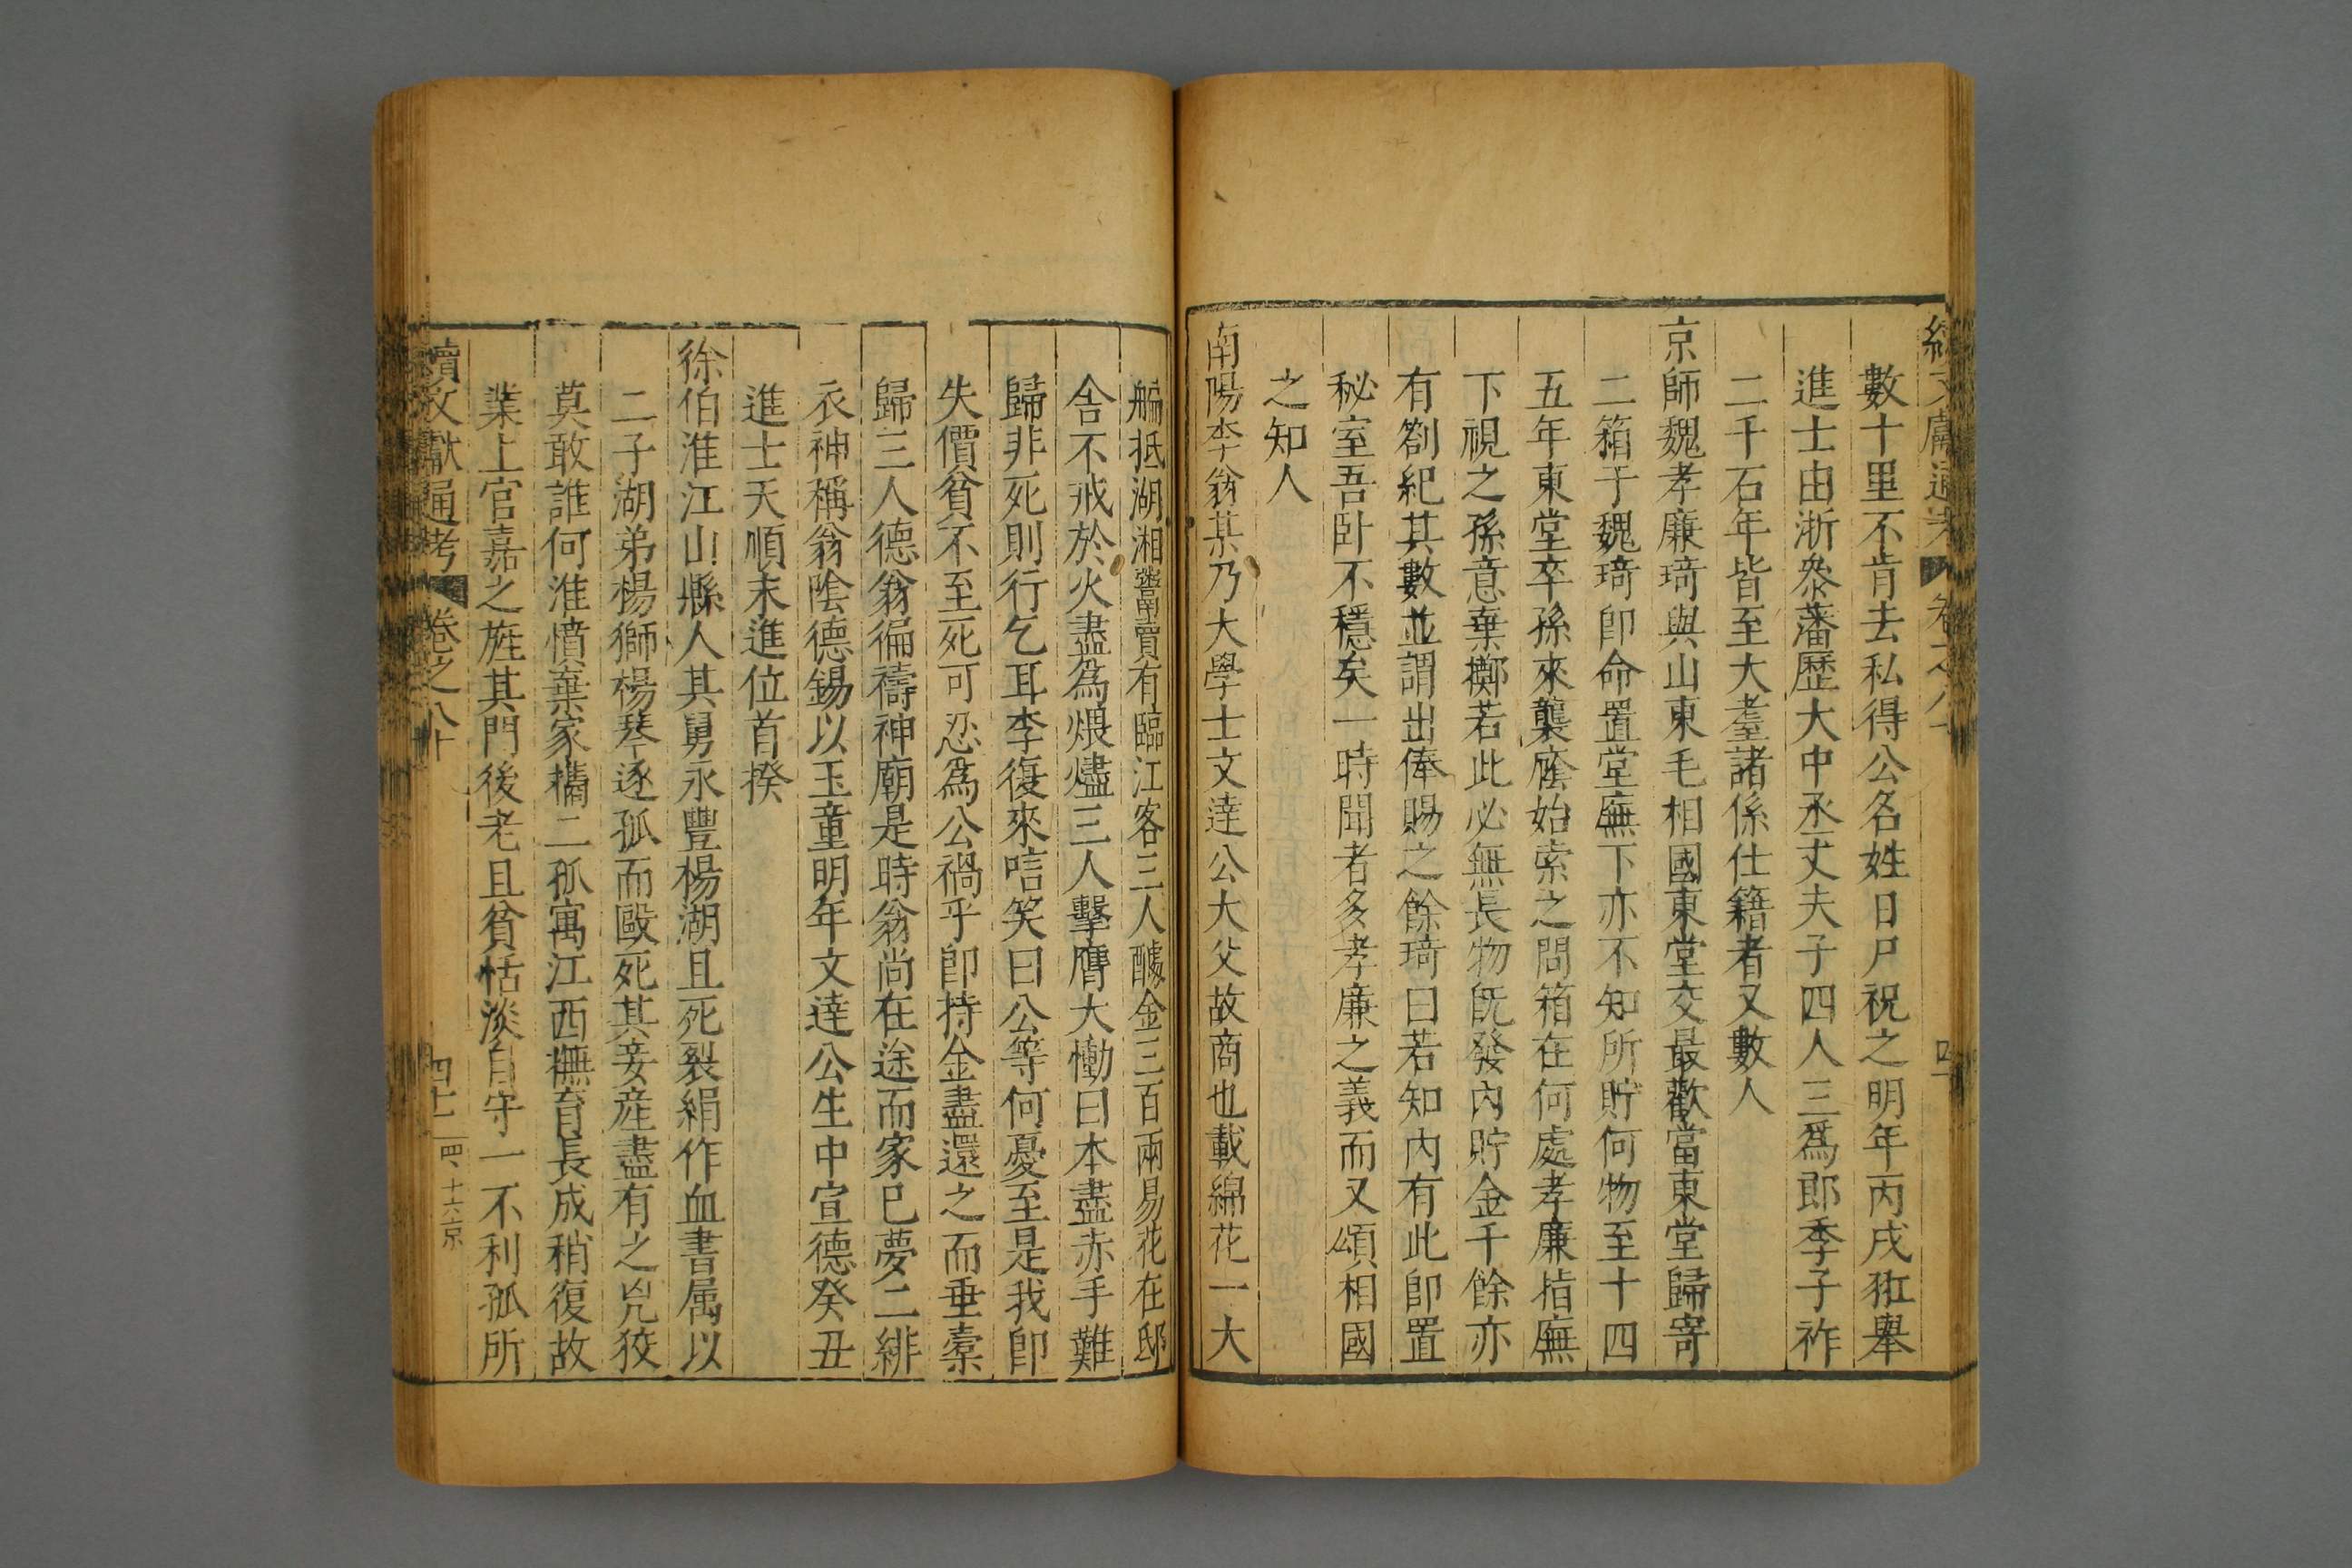 續文獻通考 卷之八十
數十里不肯去私得公名姓日尸祝之明年丙戌𤞑舉
進士由浙叅藩歷大中丞丈夫子四人三爲郎季子祚
二千石年皆至大耋諸係仕籍者又數人
京師魏孝廉琦與山東毛相國東堂交最歡當東堂歸寄
二箱于魏琦卽命置堂廡下亦不知所貯何物至十四
五年東堂卒孫來襲廕始索之問箱在何處孝廉指廡
下視之孫意棄擲若此必無長物旣發內貯金千餘亦
有劄紀其數並謂出俸賜之餘琦曰若知內有此卽置
秘室吾卧不穩矣一時聞者多孝廉之義而又頌相國
之知人
南陽李翁某乃大學士文達公大父故商也載綿花一大
艑抵湖湘鬻賈有臨江客三人醵金三百兩易花在邸
舍不戒於火盡爲煨燼三人擊膺大慟曰本盡赤手難
歸非死則行乞耳李復來唁笑曰公等何憂至是我卽
失價貧不至死可忍爲公禍乎卽持金盡還之而垂橐
歸三人德翁徧禱神廟是時翁尚在途而家已夢二緋
衣神稱翁陰德錫以玉童明年文達公生中宣德癸丑
進士天順末進位首揆
徐伯淮江山縣人其舅永豐楊湖且死裂絹作血書属以
二子湖弟楊獅楊琴逐孤而毆死其妾産盡有之兇狡
莫敢誰何淮憤棄家攜二孤寓江西撫育長成稍復故
業上官嘉之旌其門後老且貧恬淡自守一不利孤所
續文獻通考 卷之八十 四十一 四、十六京